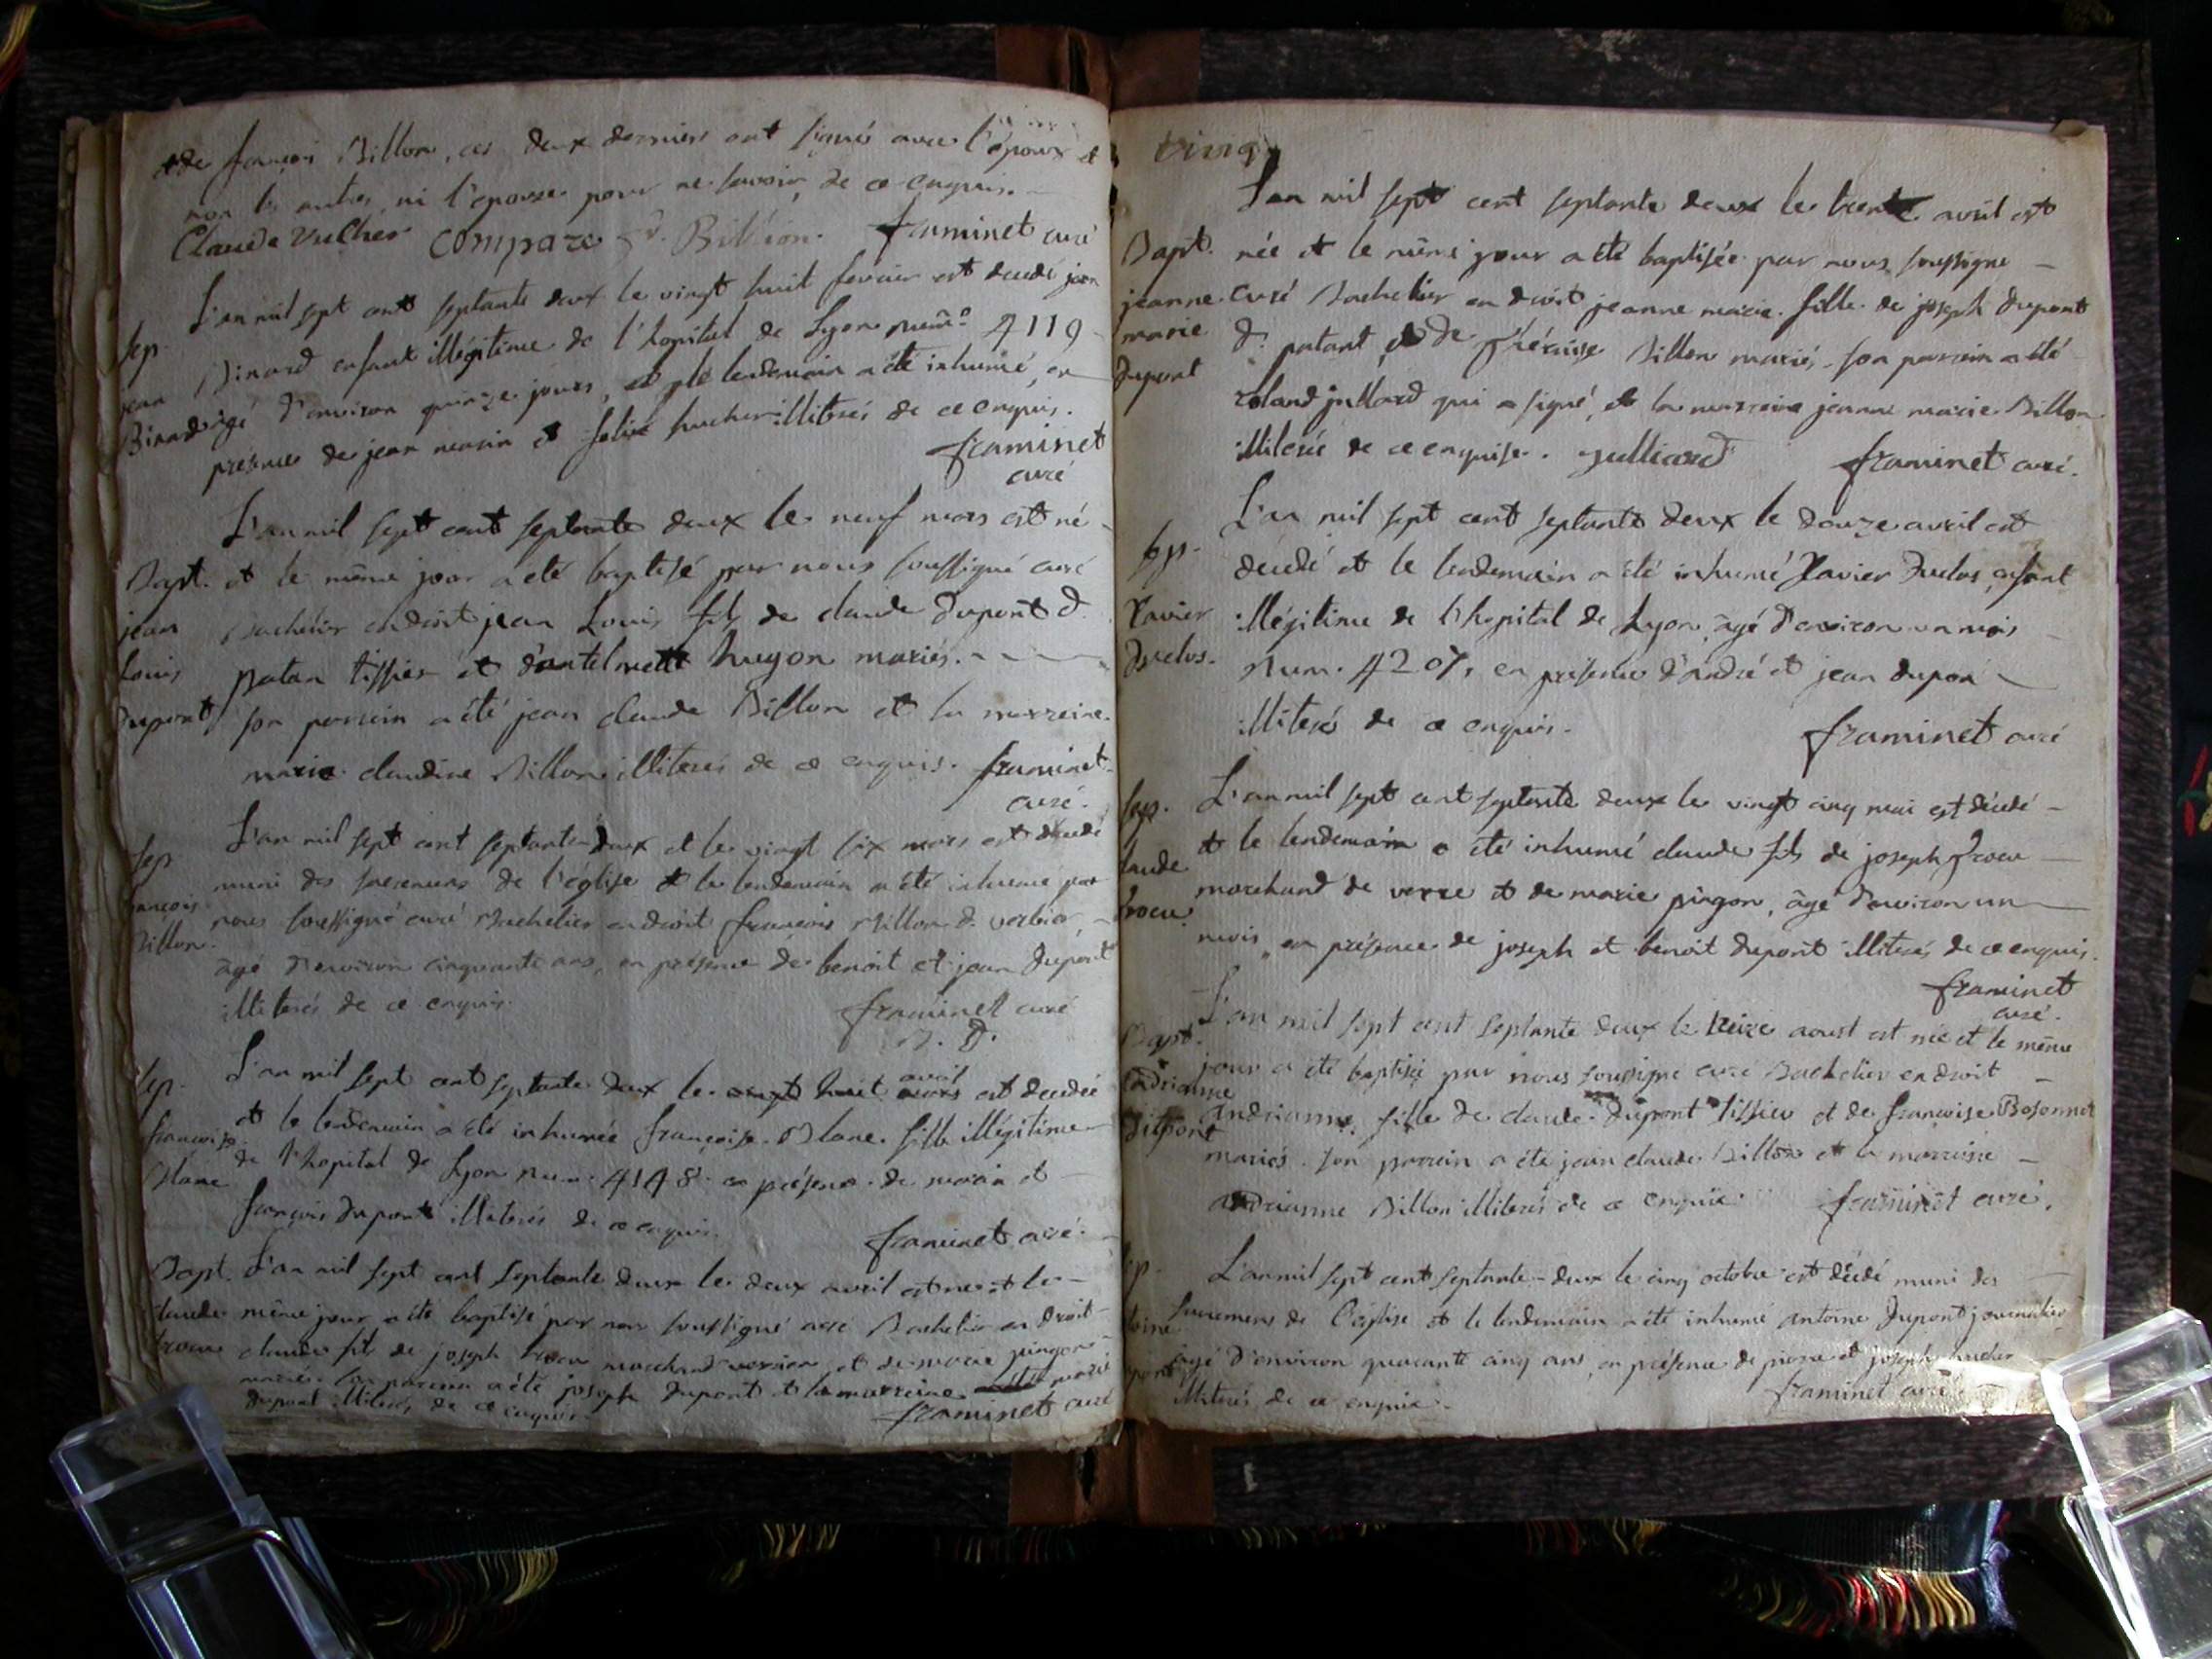 et de françois Billon, ces deux derniers ont signés avec l'époux et
non les autres, ni l'epouse pour ne savoir de ce enquis.
Claude Vucher compare Billion. framinet curé
L'an mil sept cent septante deux le vingt huit fevrier est decedé jean
Sep. Binard enfant illégitime de l'hopital de Lyon num.o 4119
jean agé d'environ quinze jours, et le lendemain a été inhumé, en
Binard présence de jean marin et felix hucher illiterés de ce enquis.
framinet
curé
L'an mil sept cent septante deux le neuf mars est né
Bapt. et le même jour a été baptisé par nous soussigné curé
jean Bachelier en droit jean Louis fils de claude Dupont d.
Louis patan tissier et d'antelmette hugon mariés.
Dupont son parrein a été jean claude Billon et la marreine
marie claudine Billon illiterés de ce enquis. framinet
curé.
L'an mil sept cent septante deux et le vingt six mars est decedé
Sep muni des sacremens de l'église et le lendemain a été inhumé par
françois nous soussigné curé Bachelier en droit françois Billon d. verbier,
Billon. âgé d'environ cinquante ans, en présence de benoit et jean Dupont
illiterés de ce enquis. framinet curé
B. d.
Sep. L'an mil sept cent septante deux le vingt huit avril mars est decedée
et le lendemain a été inhumée françoise Blanc fille illégitime
françoise de l'hopital de Lyon num. 4148 en présence de marin et
Blanc françois Dupont illiterés de ce enquis.
framinet curé.
Bapt. L'an mil sept cent septante deux le deux avril est né et le
claude même jour a été baptisé par nous soussigné curé Bachelier en droit
claude fils de joseph marchand verrier et de marie pingon
mariés. son parrein a été joseph Dupont et la marreine marie
Dupont illiterés de ce enquis. framinet curé
vinq
L'an mil sept cent septante deux le trente avril est
Bapt. née et le même jour a été baptisée par nous soussigné
jeanne curé Bachelier en droit jeanne marie fille de joseph Dupont
marie d. patant et de Théraise Billon mariés. son parrein a été
Dupont roland jullard qui a signé, et la marreine jeanne marie Billon
illiterée de ce enquise. julliard framinet curé.
L'an mil sept cent septante deux le douze avril est
sep. decedé et le lendemain a été inhumé Xavier Duclos, enfant
Xavier illégitime de l'hopital de Lyon, âgé d'environ un mois
Duclos. Num. 4207, en présence d'andré et jean dupon
illiterés de ce enquis. framinet curé
Sep. L'an mil sept cent septante deux le vingt cinq mai est décédé
claude et le lendemain a été inhumé claude fils de joseph
marchand de verre et de marie pingon, âgé d'environ un
mois, en présence de joseph et benoit dupont illiterés de ce enquis.
framinet
curé.
Bapt. L'an mil sept cent septante deux le treize aoust est née et le même
jour a été baptisée par nous soussigné curé Bachelier en droit
andrianne andrianne fille de claude Dupont Tissier et de françoise Bosonnet
Dupont mariés. son parrein a été jean claude Billon et la marreine
andrianne Billon illiterés de ce enquis. framinet curé.
Sep. L'an mil sept cent septante deux le cinq octobre est décédé muni des
sacremens de l'église et le lendemain a été inhumé antoine Dupont journalier
âgé d'environ quarante cinq ans, en présence de pierre et joseph hucher
illiterés de ce enquis. framinet curé